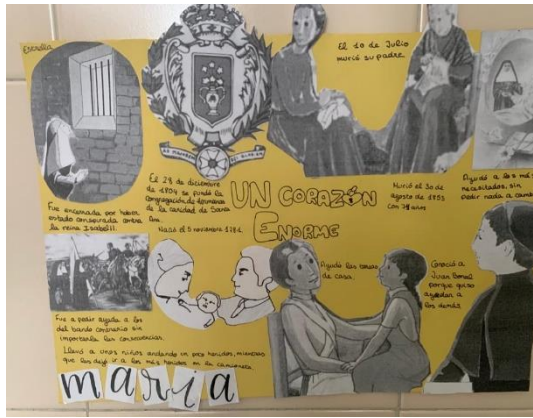 Estrella
El 10 de Julio
murió su padre.
Fue encarcelada por haber
estado conspirada contra
la reina Isabel II.
El 28 de diciembre
de 1804 se fundó la
congregación de hermanas
de la caridad de Santa
Ana.
UN CORAZÓN
ENORME
Murió el 30 de
agosto de 1853
con 72 años
Ayudó a los más
necesitados, sin
pedir nada a
Nació el 5 noviembre 1781.
Fue a pedir ayuda a los
del bando contrario sin
importarla las consecuencias.
Llevó a unos niños andando un poco heridos, mientras
que los dejó ir a los más heridos en la camioneta.
Ayudó las tareas
de casa.
Conoció a
Juan Bonal
porque quiso
ayudar a
los demás
maría